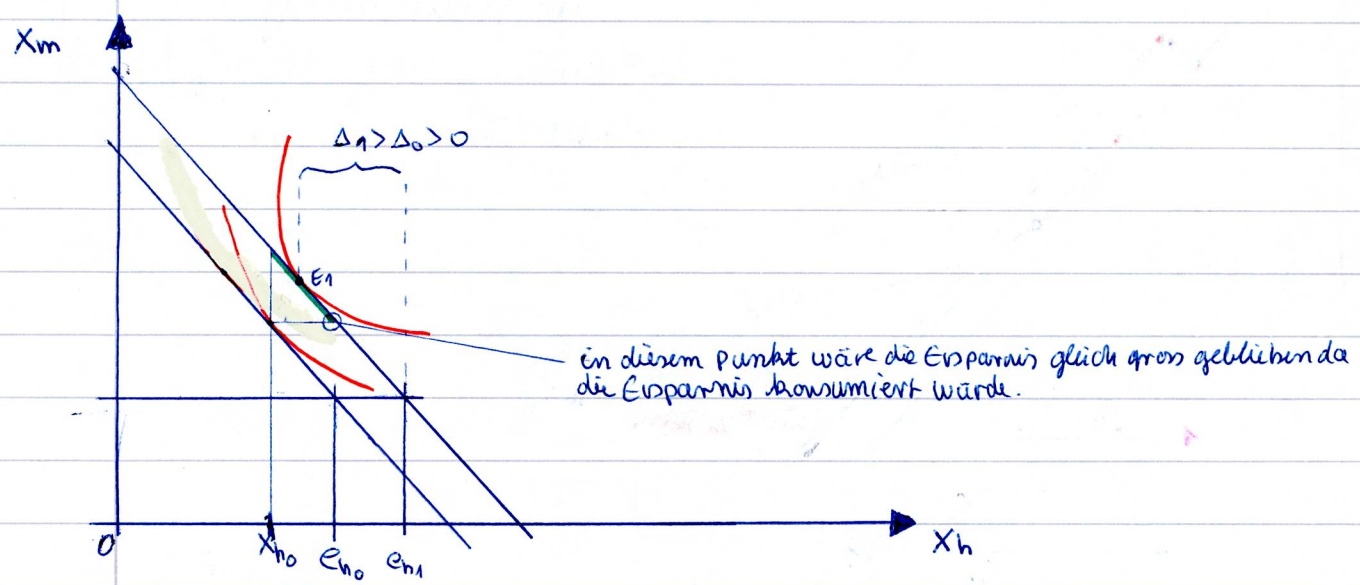 Xm
Δ1 > Δ0 > 0
E1
in diesem Punkt wäre die Ersparnis gleich gross geblieben da
die Ersparnis konsumiert würde.
0
Xh0
eh0
eh1
Xh